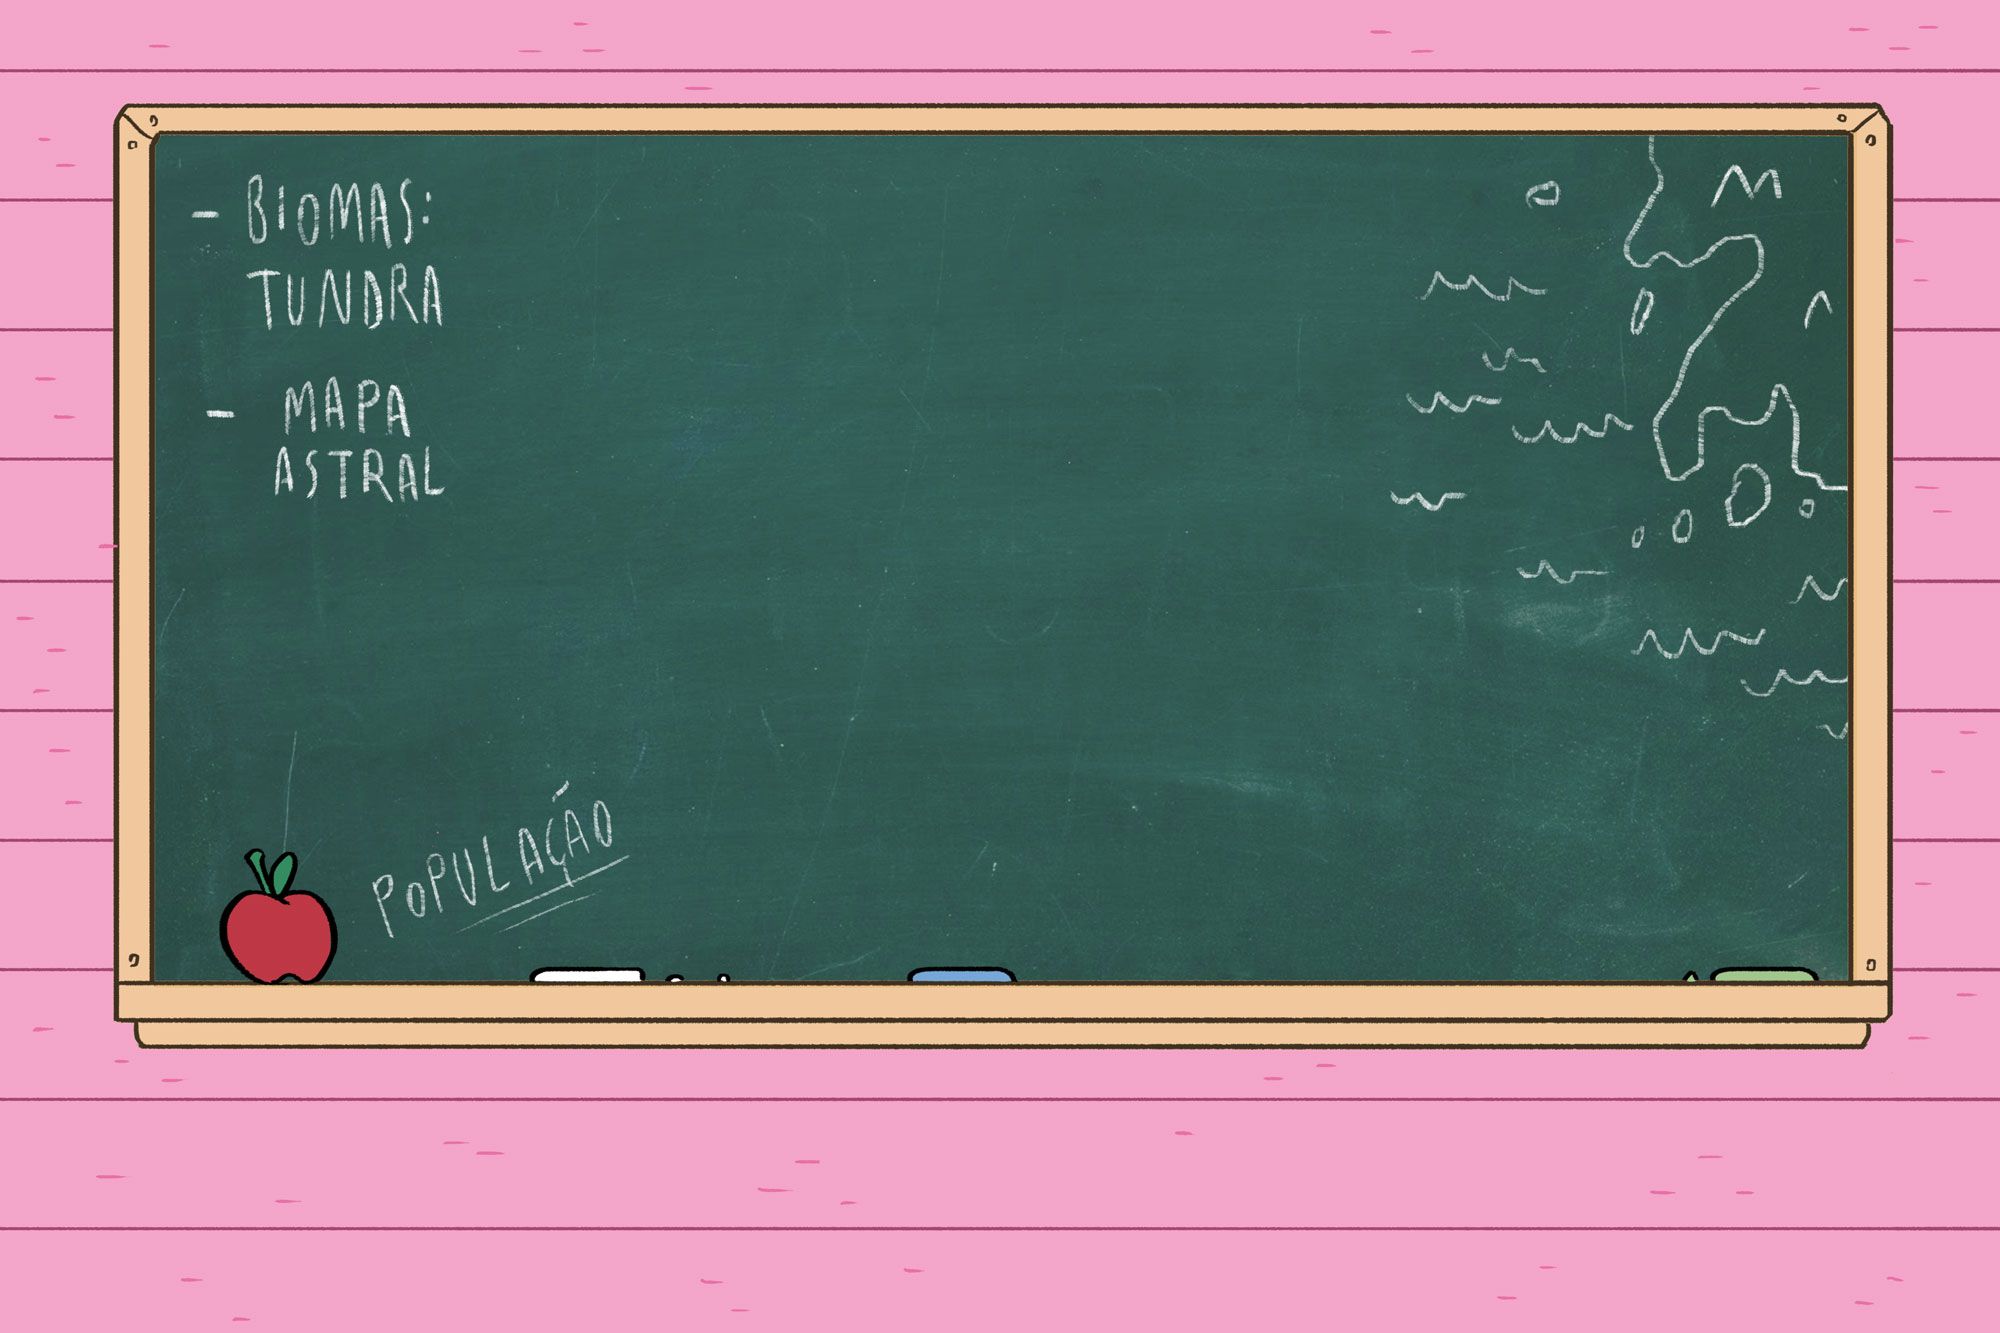 - BIOMAS:
TUNDRA
- MAPA
ASTRAL
POPULAÇÃO